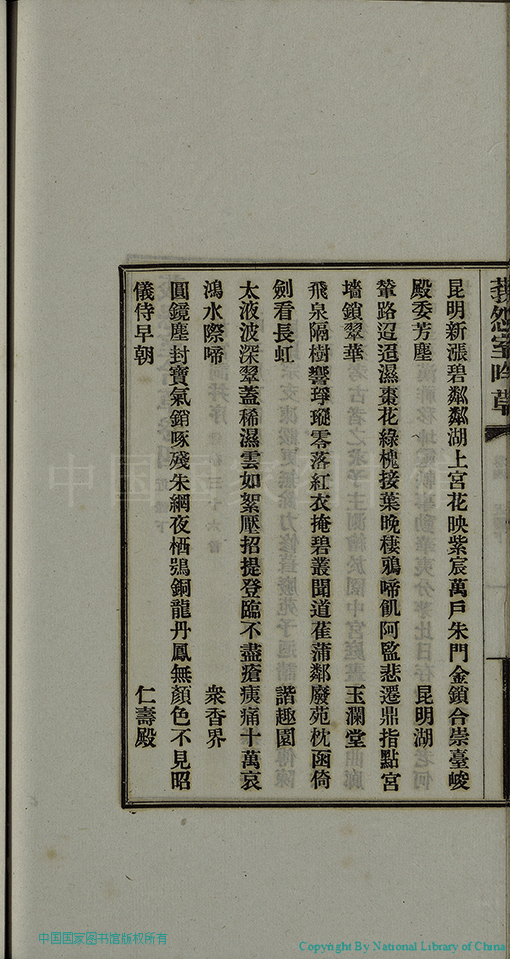 昆明新漲碧粼粼湖上宮花映紫宸萬戶朱門金鎖合崇臺峻
殿委芳塵 昆明湖
輦路迢迢濕棗花綠槐接葉晚棲鴉啼飢阿監悲遷鼎指點宮
墻鎖翠華 玉瀾堂
飛泉隔樹響琤瑽零落紅衣掩碧叢聞道萑蒲鄰廢苑枕函倚
劍看長虹 諧趣園
太液波深翠蓋稀濕雲如絮壓招提登臨不盡瘡痍痛十萬哀
鴻水際啼 衆香界
圓鏡塵封寶氣銷啄殘朱網夜栖鴞銅龍丹鳳無顏色不見昭
儀侍早朝 仁壽殿
中国国家图书馆版权所有
Copyright By National Library of China